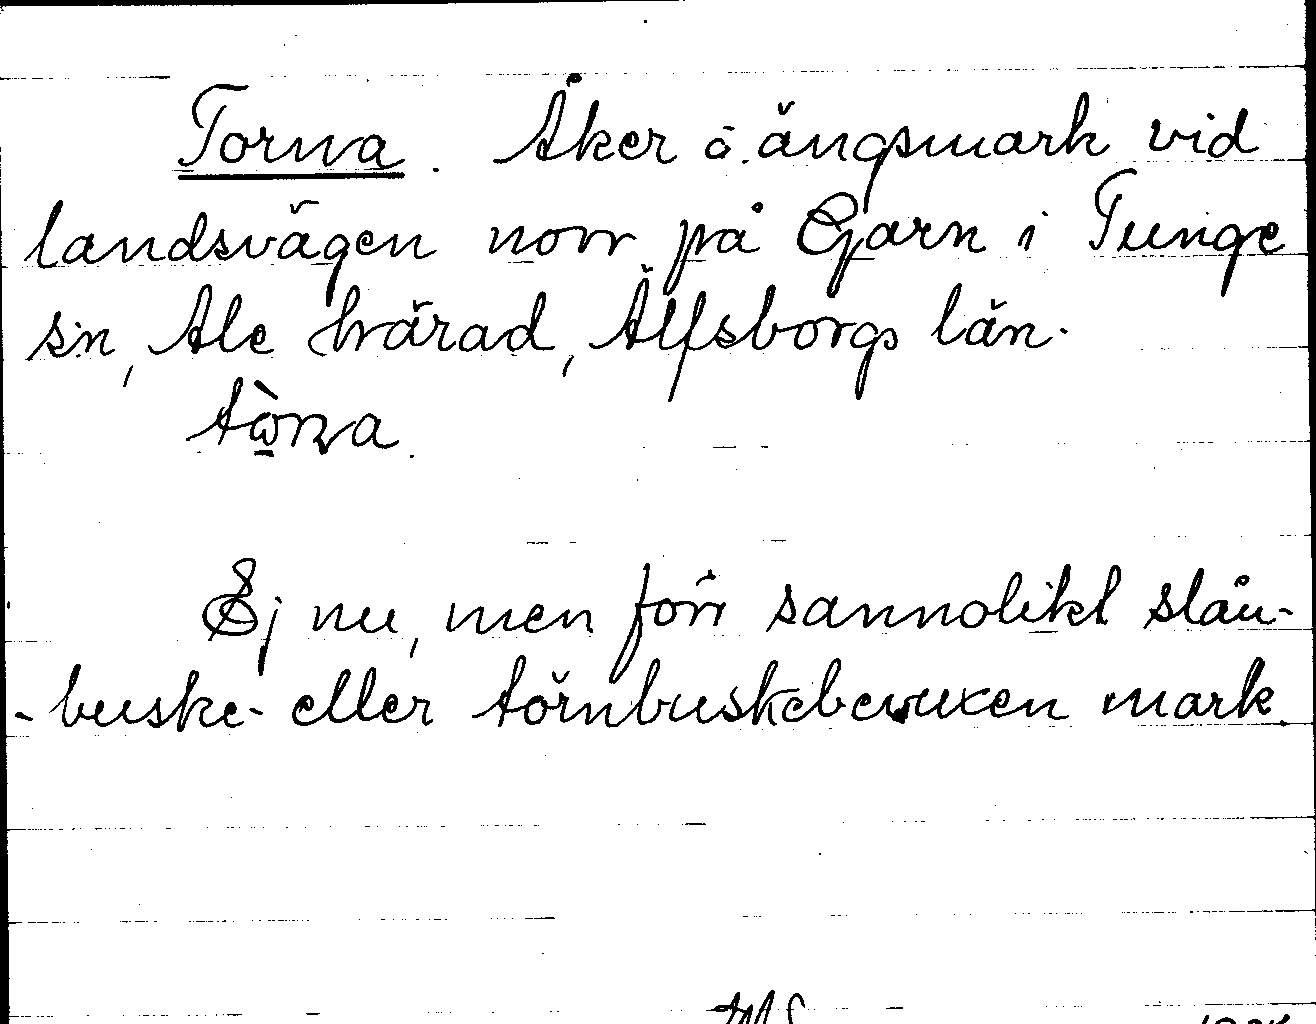 Torna. Åker o. ängsmark vid
landsvägen norr på Garn i Tunge
sn, Ale härad, Älfsborgs län.
Ej nu, men förr sannolikt slån-
-buske- eller törnbuskebevuxen mark.